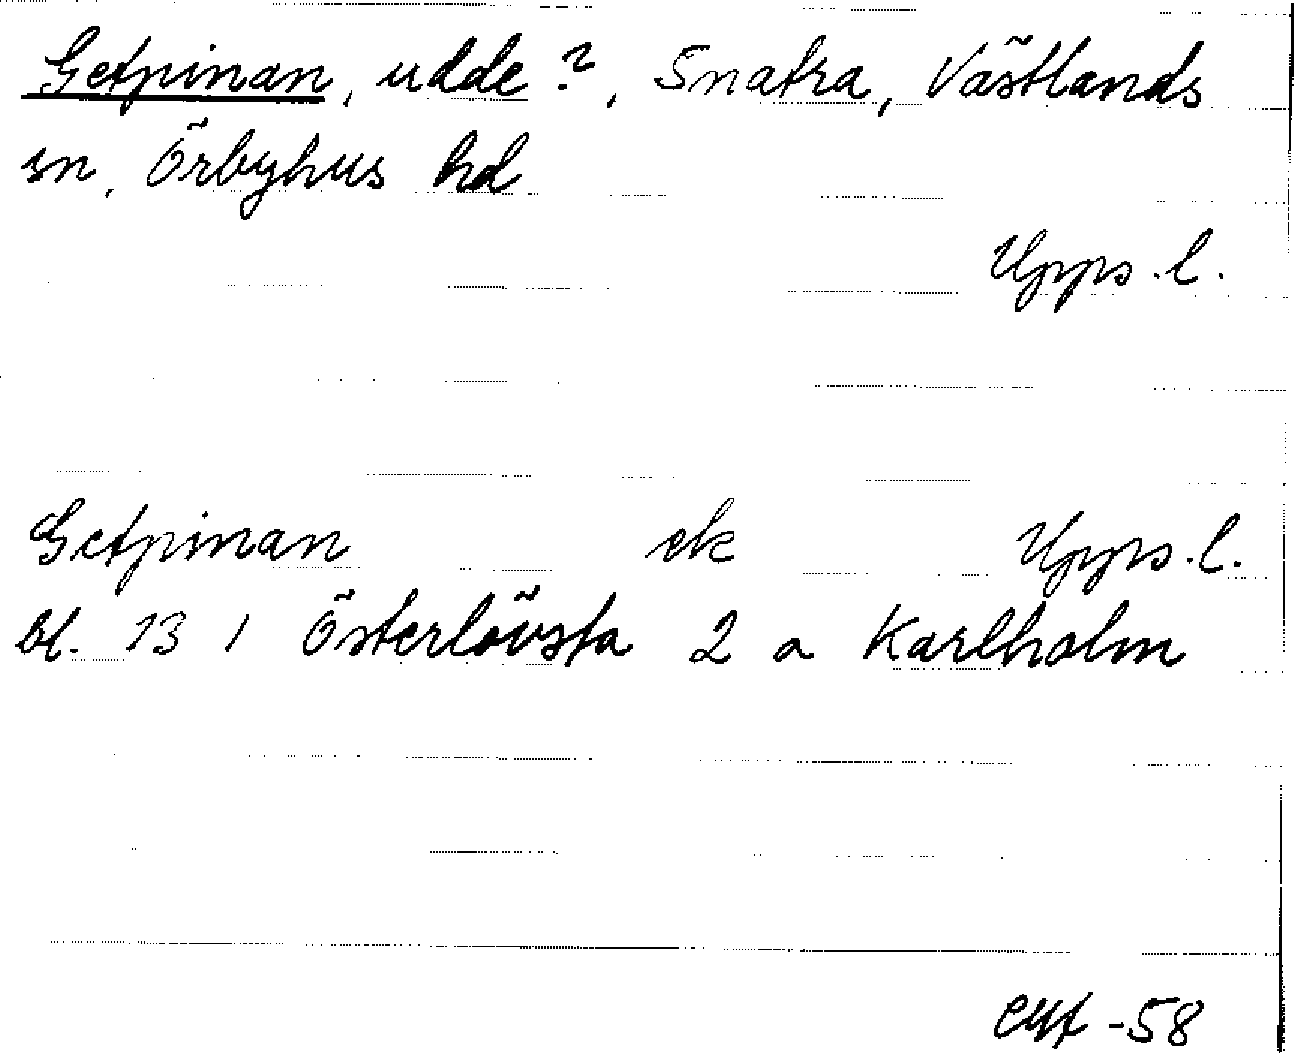 Getpinan, udde?, Snatra, Västlands
sn, Örbyhus hd
Upps. l.
Getpinan ek Upps. l.
bl. 13 I Österlövsta 2 a Karlholm
-58